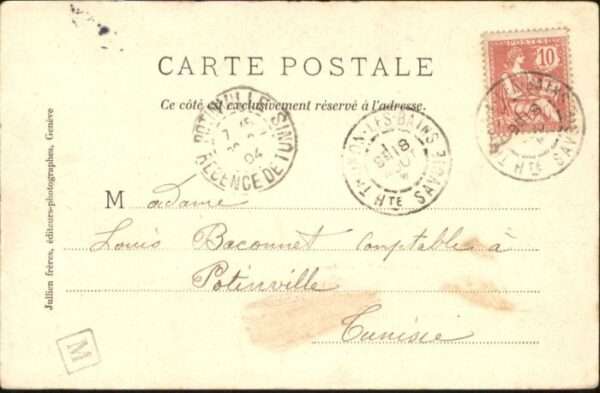 CARTE POSTALE
Ce côté est exclusivement réservé à l'adresse.
10
POSTES
POTINVILLE
7
04
RÉGENCE DE TUNIS
THONON-LES-BAINS
Hte SAVOIE
Hte SAVOIE
Madame
Louis Baconnet Comptable à
Potinville
Tunisie
Jullien frères, éditeurs-photographes, Genève
M